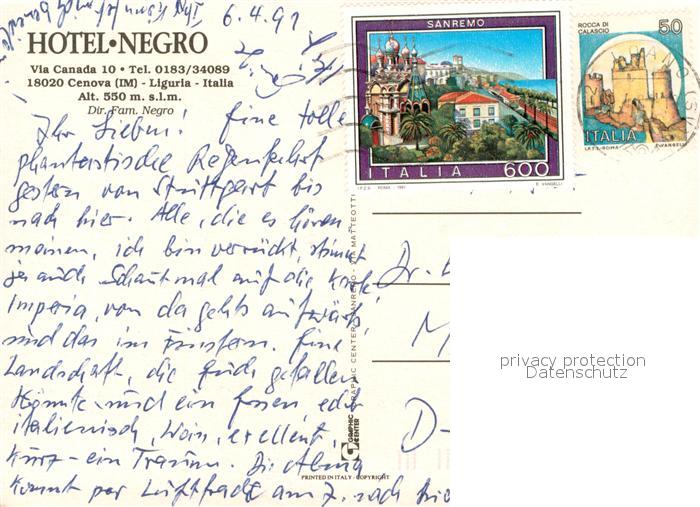 6.4.91
HOTEL•NEGRO
Via Canada 10 • Tel. 0183/34089
18020 Cenova (IM) - Liguria - Italia
Alt. 550 m. s.l.m.
Dir. Fam. Negro
Ihr Lieben! Eine tolle
phantastische Regenfahrt
gestern von Stuttgart bis
nach hier. Alle, die es hören
meinen, ich bin verrückt, stimmt
ja auch. Schaut mal auf die Karte
Imperia, von da gehts aufwärts
und das im Finstern. Eine
Landschaft, die Euch gefallen
könnte und ein Essen, echt
italienisch, Wein, exellent,
kurz - ein Traum. Die
kommt per Luftfracht am 7. nach hier
SANREMO
ITALIA 600
I.P.Z.S. ROMA - 1991
E. VANGELLI
ROCCA DI
CALASCIO
50
ITALIA
I.P.Z.S. ROMA
E. VANGELLI
Dr.
M
D-
GRAPHIC CENTER - SANREMO - VIA MATTEOTTI
GRAPHIC
CENTER
PRINTED IN ITALY - COPYRIGHT
privacy protection
Datenschutz